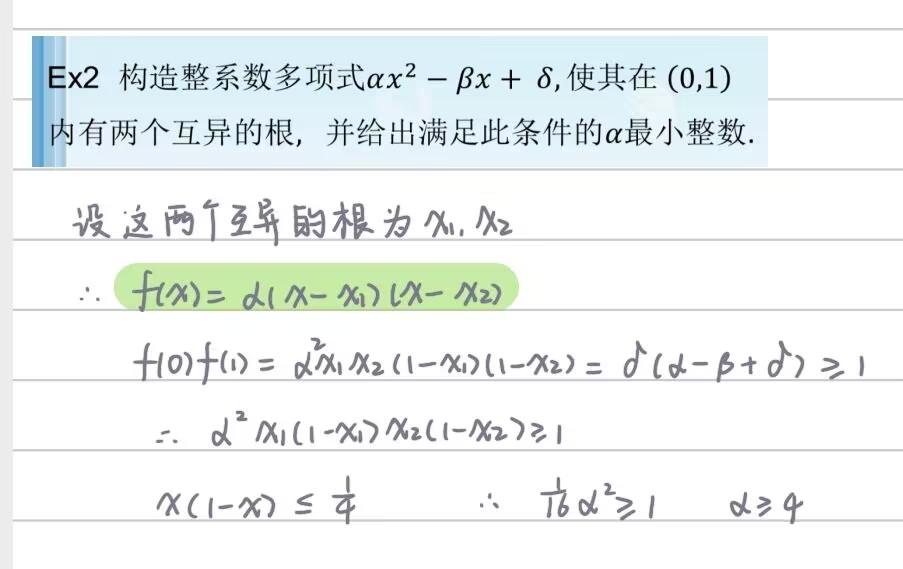 Ex2 构造整系数多项式αx² − βx + δ,使其在 (0,1)
内有两个互异的根，并给出满足此条件的α最小整数.
设这两个互异的根为 x₁, x₂
∴ f(x) = α(x − x₁)(x − x₂)
f(0)f(1) = α²x₁x₂(1−x₁)(1−x₂) = δ(α − β + δ) ≥ 1
∴ α² x₁(1−x₁) x₂(1−x₂) ≥ 1
x(1−x) ≤ 1/4 ∴ 1/16 α² ≥ 1 α ≥ 4